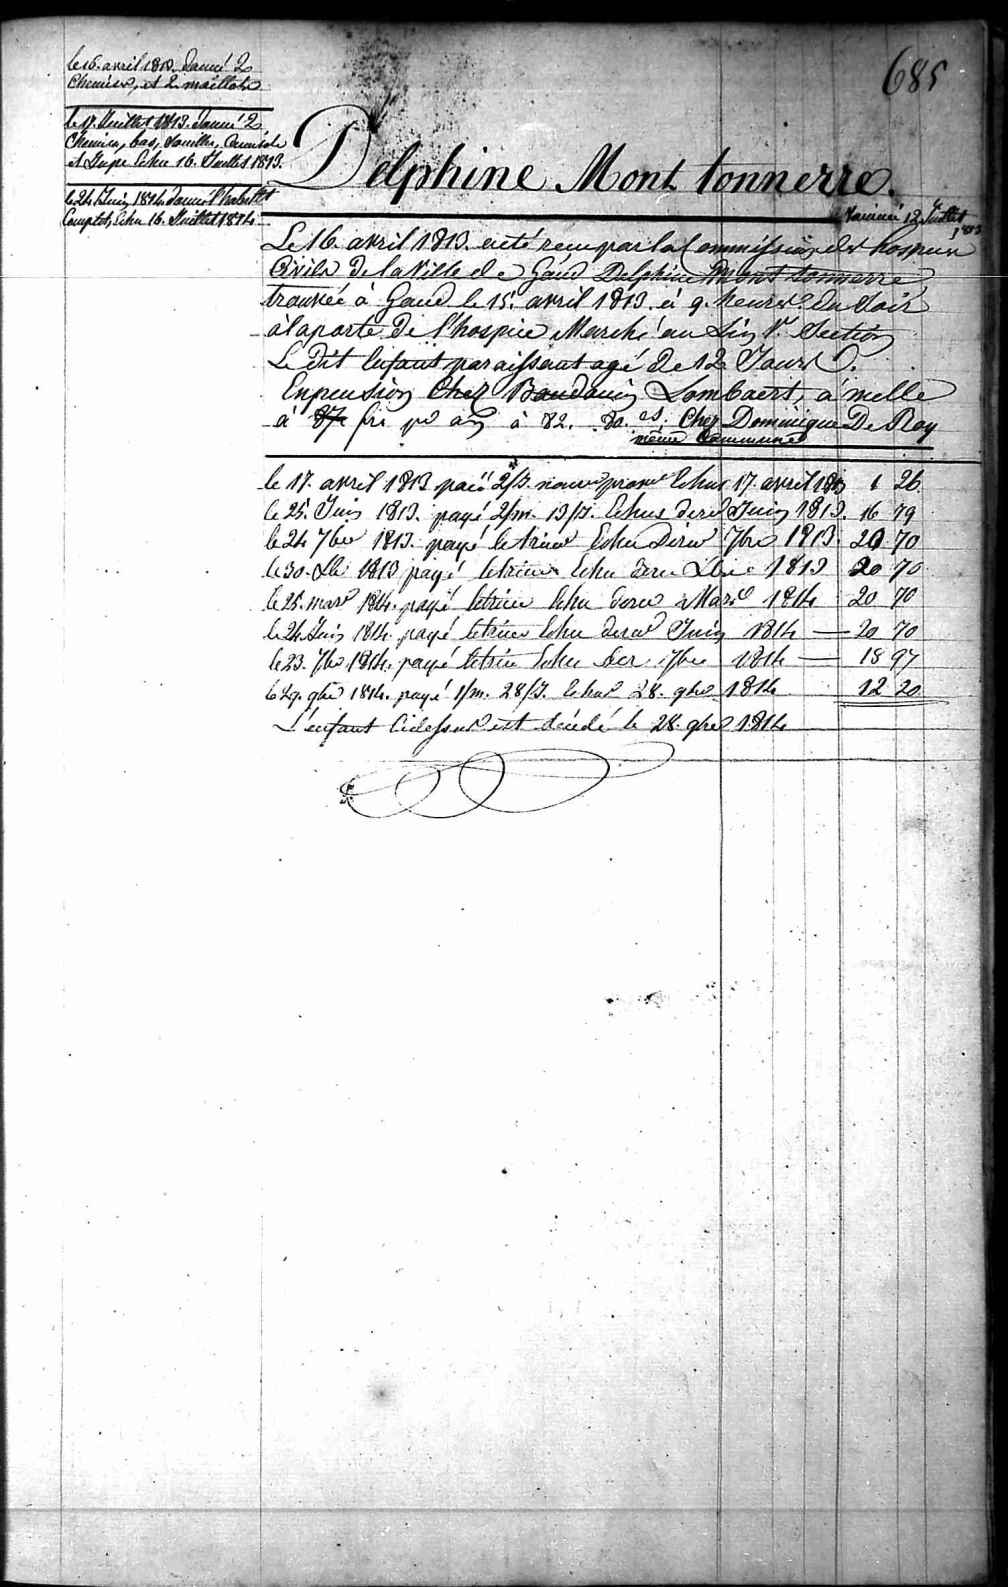 685
le 16. avril 1813. donné 2
Chemises, et 2 maillots
le 17. Juillet 1813. donné 2
Chemises, bas, Souillez, Camisole
et Jupe Echu 16. Juillet 1813.
le 24 Juin 1814 donné l'habillt
Complet, Echu 16. Juillet 1814.
Delphine Mont tonnerre.
Vacciné 12 Juillet 1813
Le 16. avril 1813. a été reçu par la Commission des hospices
Civils de la Ville de Gand Delphine Mont tonnerre
trouvée à Gand le 15. avril 1813 à 9. heures du Soir
à la porte de l'hospice Marché au Lin 1r. Section
Le dit Enfant paraissant agé de 12 Jours.
En pension Chez Baudouin Lombaert, à melle
à frs pr an à 82. 80. cs. Chez Dominique De Roy
même Commune
le 17. avril 1813 paié 2/J. échus 17. avril 1813 1 26
le 25. Juin 1813. payé 2/m. 13/J. Echus derer Juin 1813. 16 79
le 24 7bre 1813. payé le trire Echu derer 7bre 1813. 20 70
le 30. Xbre 1813 payé le trire Echu derer Xbre 1813 20 70
le 25. mars 1814. payé le trire Echu derer Mars 1814 20 70
le 24 Juin 1814. payé le trire Echu derer Juin 1814 — 20 70
le 23. 7bre 1814. payé le trire Echu der 7bre 1814 — 18 97
le 29. 9bre 1814. payé 1/m. 28/J. Echus 28. 9bre 1814 12 20
L'enfant Cidessus est décédé le 28. 9bre 1814